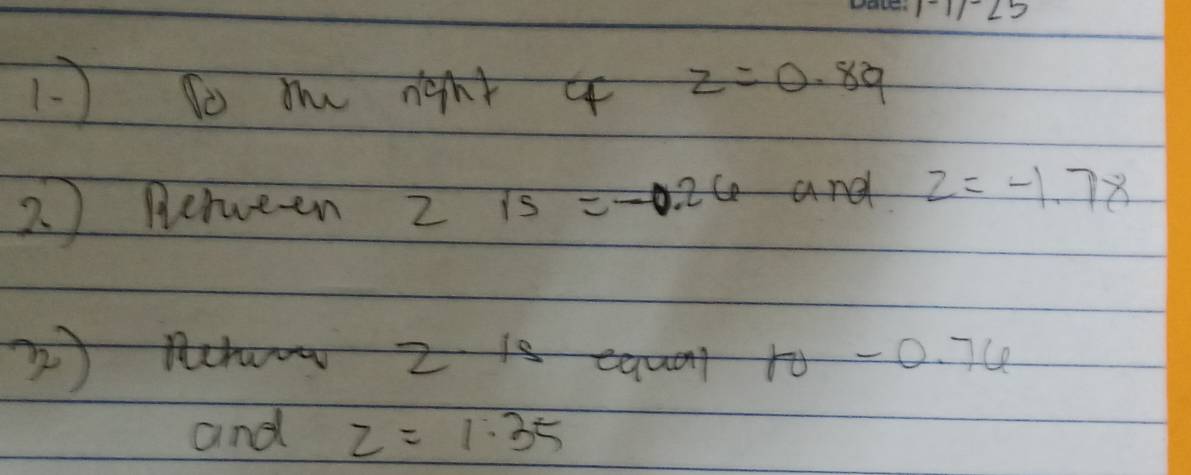 Date: 1-17-25
1.) To the right of z = 0.89
2.) Between z is = -0.26 and z = -1.78
3.) Between z is equal to -0.76
and z = 1.35